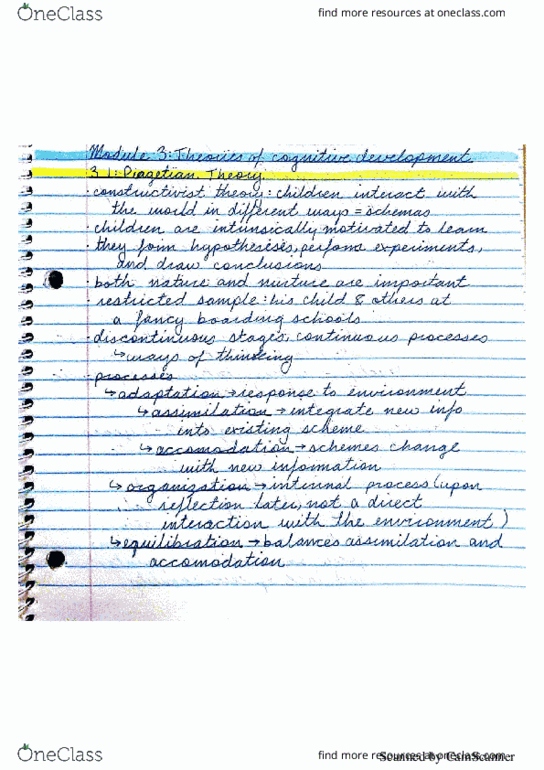 OneClass
find more resources at oneclass.com
Module 3: Theories of cognitive development
3.1: Piagetian Theory
· constructivist theory: children interact with
the world in different ways = schemas
· children are intrinsically motivated to learn
· they form hypothesises, perform experiments,
and draw conclusions
· both nature and nurture are important
· restricted sample: his child & others at
a fancy boarding schools
· discontinuous stages, continuous processes
↳ ways of thinking
· processes
↳ adaptation → response to environment
↳ assimilation → integrate new info
into existing scheme
↳ accomodation → schemes change
with new information
↳ organization → internal process (upon
reflection later, not a direct
interaction with the environment)
↳ equilibration → balances assimilation and
accomodation
OneClass
find more resources at oneclass.com
Scanned by CamScanner